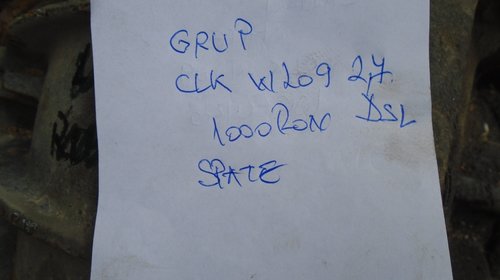 GRUP
CLK W209 2,7.
1000 RON DSL
SPATE